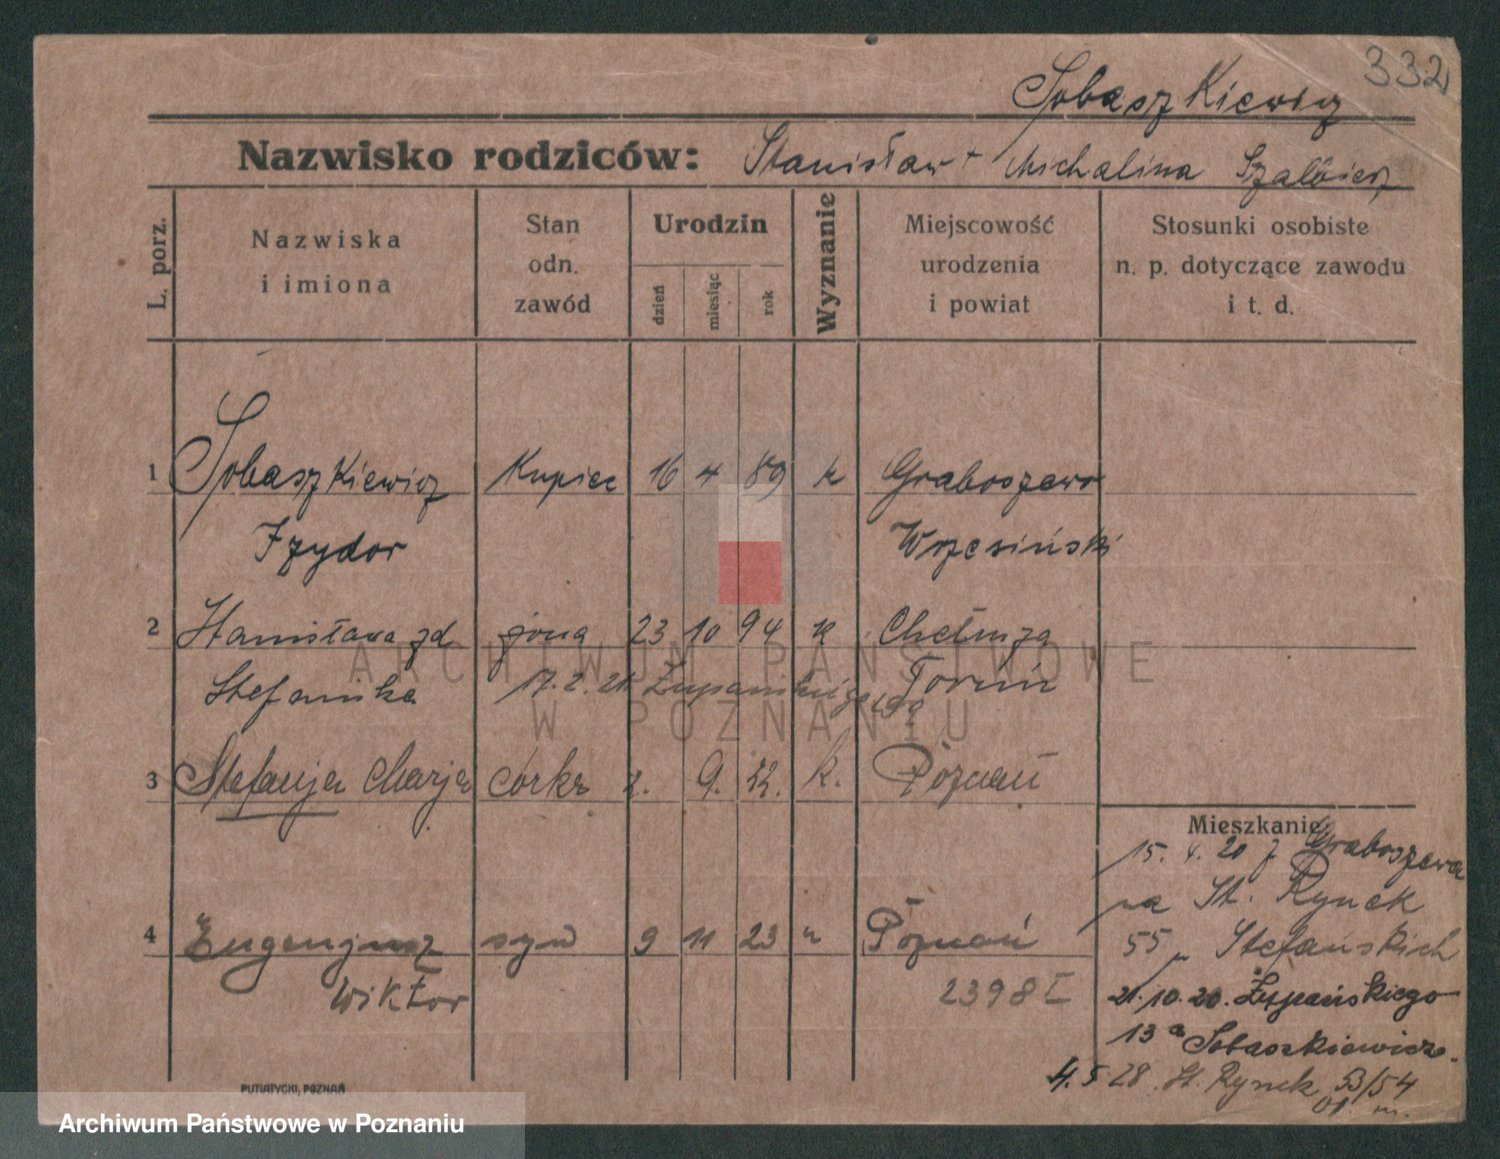 332
Sobaszkiewicz
Nazwisko rodziców: Stanisław + Michalina
L. porz.
Nazwiska
i imiona
Stan
odn.
zawód
Urodzin
dzień
miesiąc
rok
Wyznanie
Miejscowość
urodzenia
i powiat
Stosunki osobiste
n. p. dotyczące zawodu
i t. d.
1 Sobaszkiewicz Kupiec 16 4 89 k Graboszewo
Izydor Wrzesiński
2 Stanisława zd żona 23 10 94 k Chełmża
Stefanika 17.2.21. Żupańskiego Toruń
3 Stefanja Marja córka 2. 9. 22. k. Poznań
4 Eugenjusz syn 9 11 23 " Poznań
Wiktor 2398 I
Mieszkanie
15. 4. 20 z Graboszewa
na St. Rynek
55 Stefańskich
21.10.20. Żupańskiego
13a Sobaszkiewicz.
4.5 28. St. Rynek 53/54
m.
PUTIATYCKI, POZNAŃ
ARCHIWUM PAŃSTWOWE
W POZNANIU
Archiwum Państwowe w Poznaniu